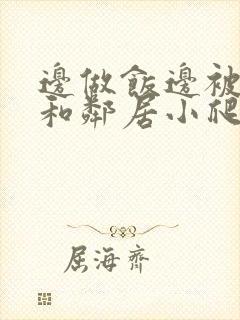 邊做飯邊被
和鄰居小爬
屈海齊